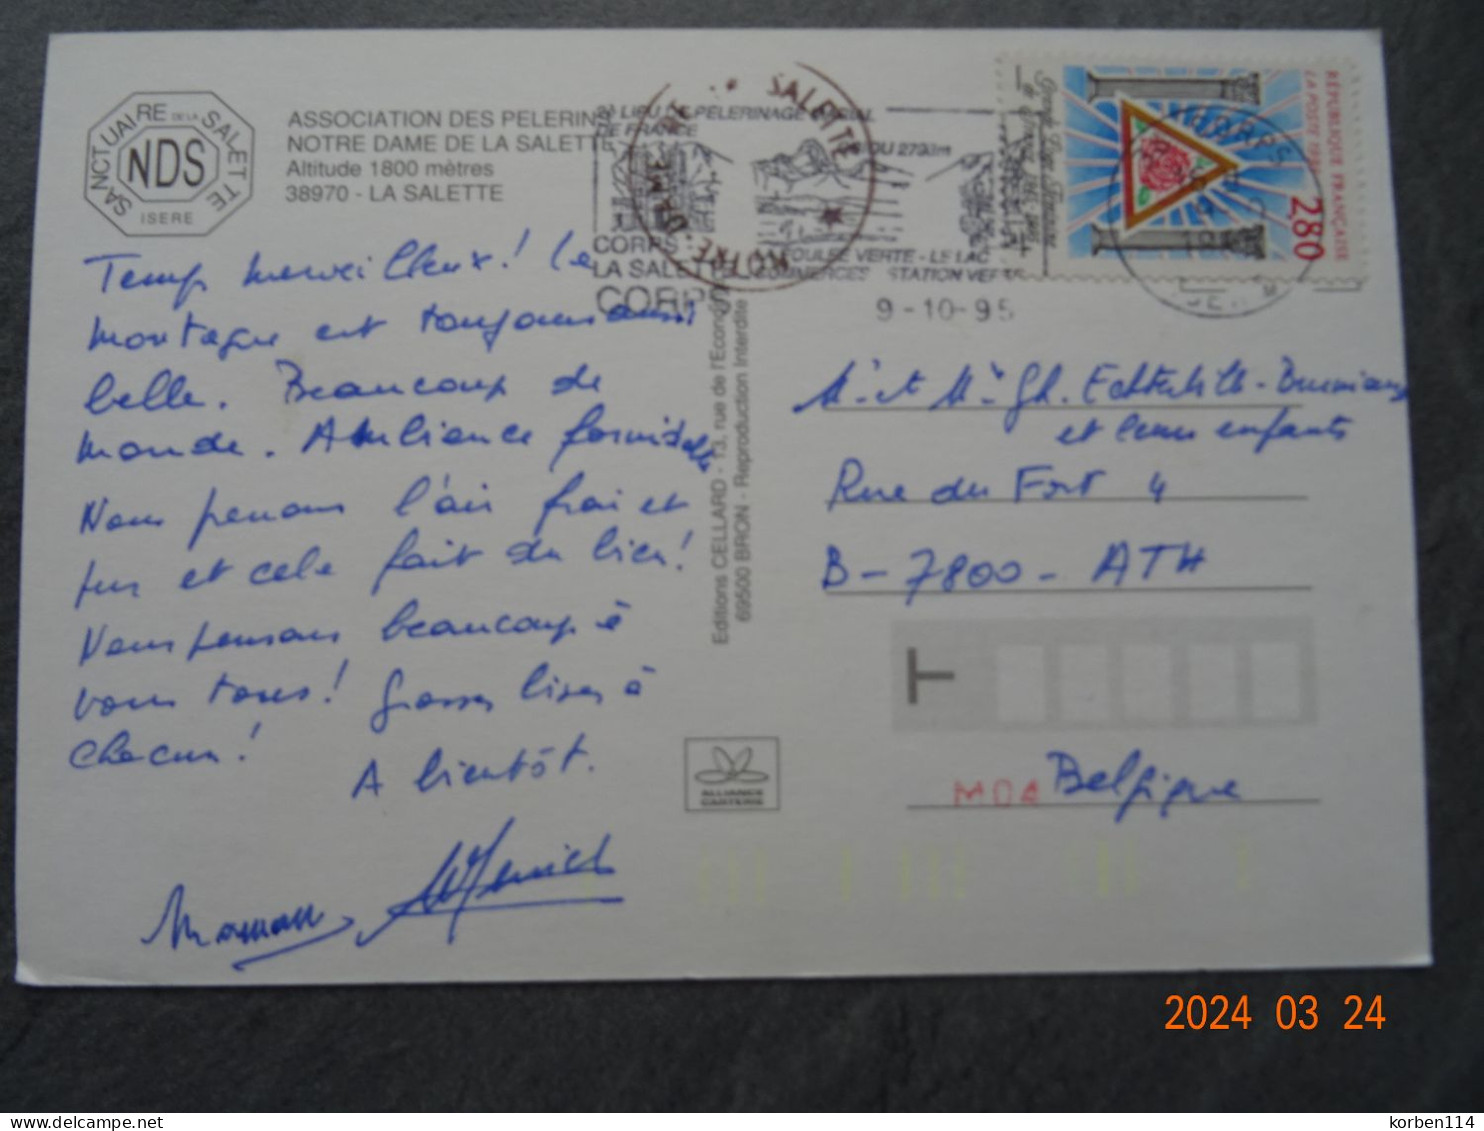 SANCTUAIRE DE LA SALETTE
NDS
ISERE
ASSOCIATION DES PELERINS
NOTRE DAME DE LA SALETTE
Altitude 1800 mètres
38970 - LA SALETTE
Temps merveilleux! La
montagne est toujours aussi
belle. Beaucoup de
monde. Ambiance formidable
Nous prenons l'air frais et
pur et cela fait du bien!
Nous pensons beaucoup à
vous tous! Grosses bises à
chacun!
A bientôt.
Maman
Editions CELLARD - T3, rue de
69500 BRON - Reproduction Interdite
ALLIANCE
CARTERIE
2è LIEU DE PÈLERINAGE
DE FRANCE
2793m
CORPS
LA SALETTE
CORPS
VERTE - LE LAC
COMMERCES STATION VERTE
9-10-95
NOTRE DAME
SALETTE
CORPS
ISERE
REPUBLIQUE FRANÇAISE
LA POSTE
2,80
Mr et Mme Gh.
et leurs enfants
Rue du Fort 4
B-7800-ATH
T
Belgique
2024 03 24
korben114